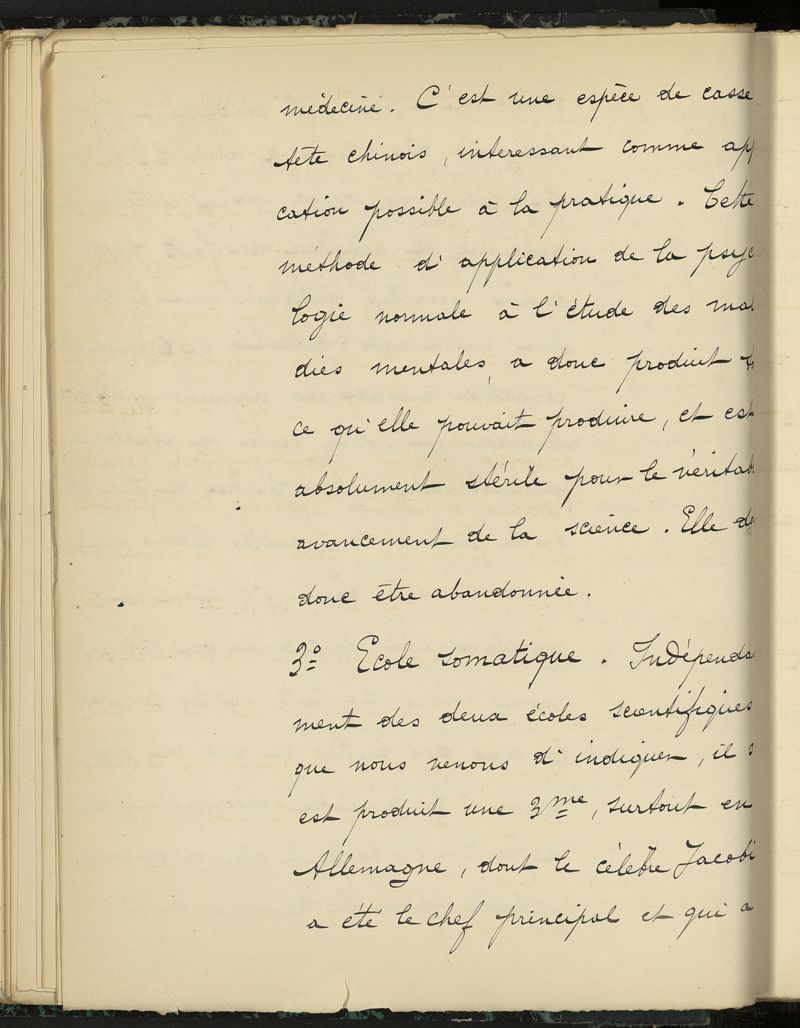 médecine. C'est une espèce de casse
tête chinois, interessant comme app
cation possible à la pratique. Cette
méthode d'application de la psyc
logie normale à l'étude des ma
dies mentales, a donc produit
ce qu'elle pouvait produire, et est
absolument stérile pour le véritab
avancement de la science. Elle de
donc être abandonnée.
3º Ecole somatique. Indépenda
ment des deux écoles scientifiques
que nous venons d'indiquer, il s
est produit une 3me, surtout en
Allemagne, dont le célèbre Jacobi
a été le chef principal et qui a